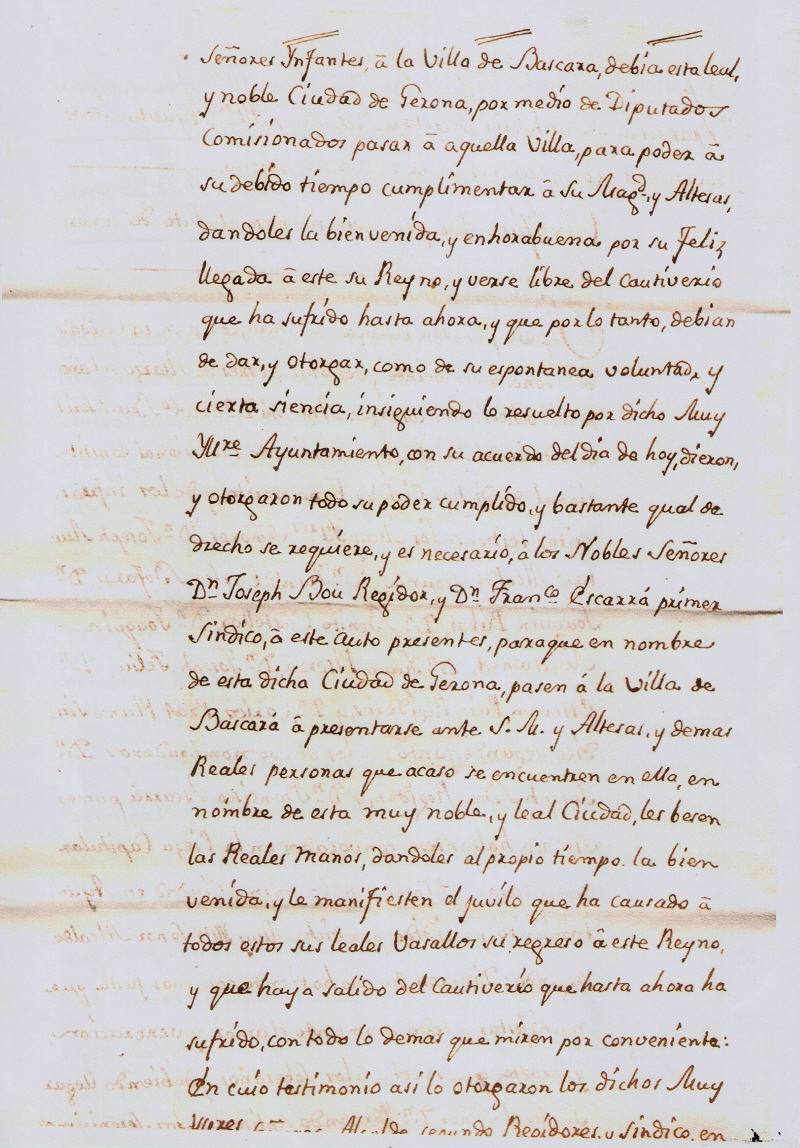 Señores Ynfantes, â la Villa de Bascara, debia esta leal,
y noble Ciudad de Gerona, por medio de Diputados
Comisionados pasar â aquella Villa, para poder â
su debido tiempo cumplimentar â su Magd. y Altesas,
dandoles la bien venida, y enhorabuena por su Feliz
llegada â este su Reyno, y verse libre del cautiverio
que ha sufrido hasta ahora, y que por lo tanto, debian
de dar, y otorgar, como de su espontanea voluntad, y
cierta siencia, insiguiendo lo resuelto por dicho Muy
Yllre Ayuntamiento, con su acuerdo del dia de hoy, dieron,
y otorgaron todo su poder cumplido, y bastante qual de
drecho se requiere, y es necesario, â los Nobles Señores
Dn Joseph Bou Regidor, y Dn Franco Escarrá primer
Sindico, â este auto presentes, paraque en nombre
de esta dicha Ciudad de Gerona, pasen â la Villa de
Bascará â presentarse ante S. M. y Altesas, y demas
Reales personas que acaso se encuentren en ella, en
nombre de esta muy noble, y leal Ciudad, les besen
las Reales manos, dandoles al propio tiempo la bien
venida, y le manifiesten el juvilo que ha causado â
todos estos sus leales Vasallos su regreso â este Reyno,
y que haya salido del Cautiverio que hasta ahora ha
sufrido, con todo lo demas que miren por conveniente:
En cuio testimonio asi lo otorgaron los dichos Muy
Alcalde segundo Regidores, y Sindico, en